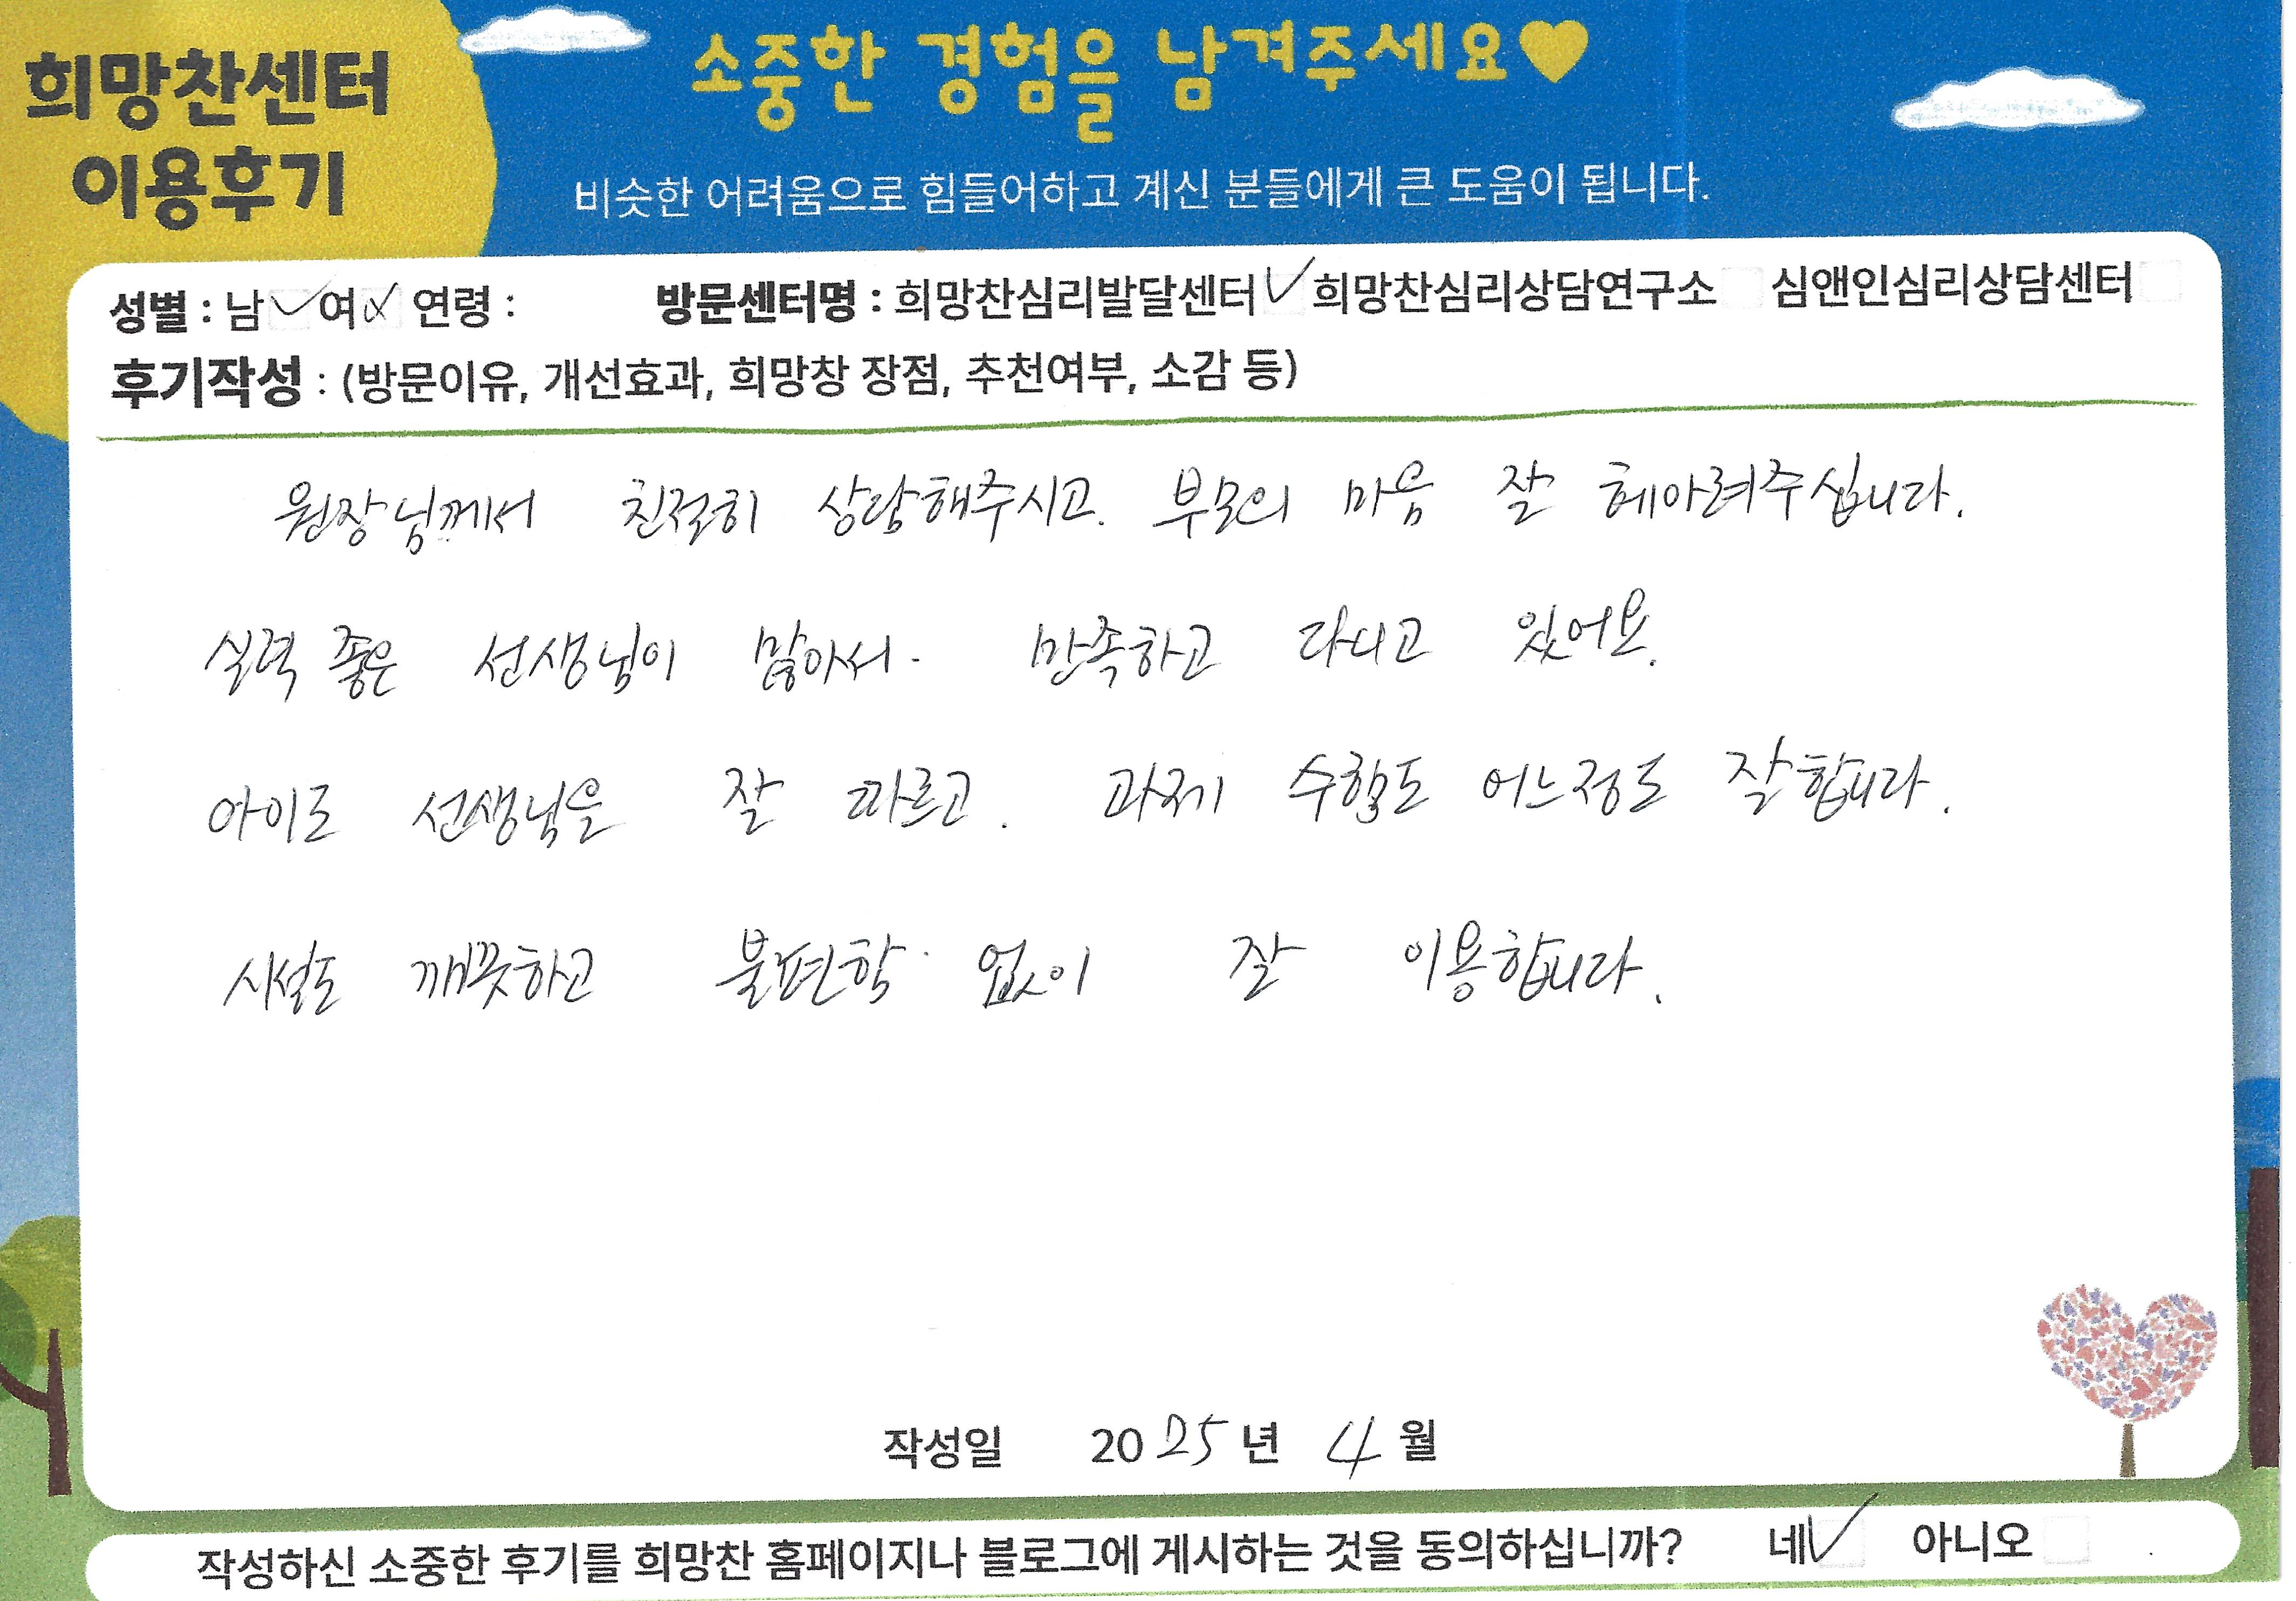 희망찬센터
이용후기
소중한 경험을 남겨주세요♥
비슷한 어려움으로 힘들어하고 계신 분들에게 큰 도움이 됩니다.
성별 : 남 ✓ 여 ✓ 연령 : 방문센터명 : 희망찬심리발달센터 ✓ 희망찬심리상담연구소 심앤인심리상담센터
후기작성 : (방문이유, 개선효과, 희망창 장점, 추천여부, 소감 등)
원장님께서 친절히 상담해주시고. 부모의 마음 잘 헤아려주십니다.
실력 좋은 선생님이 많아서. 만족하고 다니고 있어요.
아이도 선생님을 잘 따르고. 과제 수행도 어느정도 잘합니다.
시설도 깨끗하고 불편함 없이 잘 이용합니다.
작성일 2025년 4월
작성하신 소중한 후기를 희망찬 홈페이지나 블로그에 게시하는 것을 동의하십니까? 네 ✓ 아니오